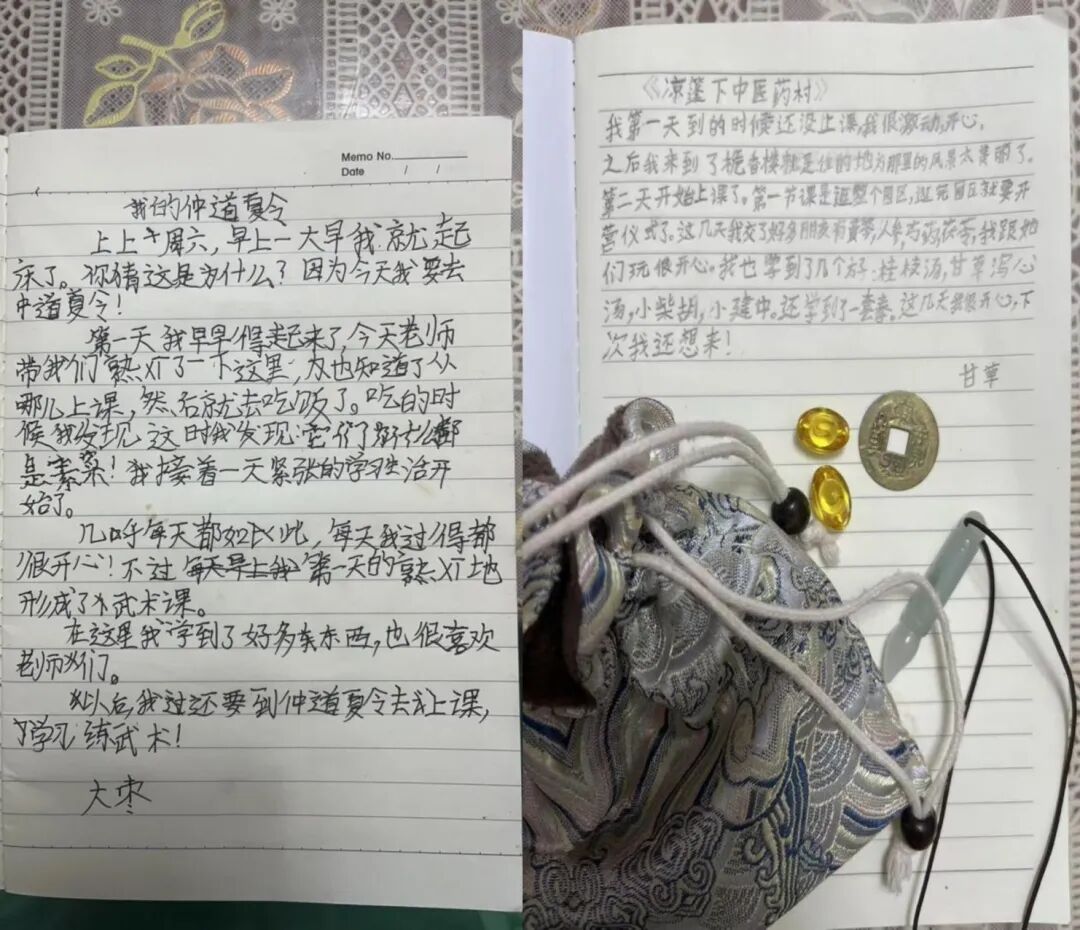 Memo No.
Date / /
我的仲道夏令
上上个周六，早上一大早我就起
床了。你猜这是为什么？因为今天我要去
中道夏令！
第一天我早早得起来了，今天老师
带我们熟习了一下这里，也知道了从
哪儿上课，然后就去吃饭了。吃的时
候我发现，这时我发现它们好什么都
是素菜！我接着一天紧张的学习生活开
始了。
几呼每天都如此，每天我过得都
很开心！不过每天早上我第一天的熟习地
形成了武术课。
在这里我学到了好多东西，也很喜欢
老师们。
以后，我过还要到仲道夏令去上课，
学习练武术！
大枣
《凉篷下中医药村》
我第一天到的时候还没上课，我很激动，开心，
之后我来到了桅香楼就是住的地方那里的风景太美丽了。
第二天开始上课了。第一节课是逛整个园区，逛完园区就要开
营仪式了。这几天我交了好多朋友有黄芩，人参，芍药，茯苓，我跟她
们玩很开心。我也学到了几个方：桂枝汤，甘草泻心
汤，小柴胡，小建中。还学到了一套拳。这几天我很开心，下
次我还想来！
甘草